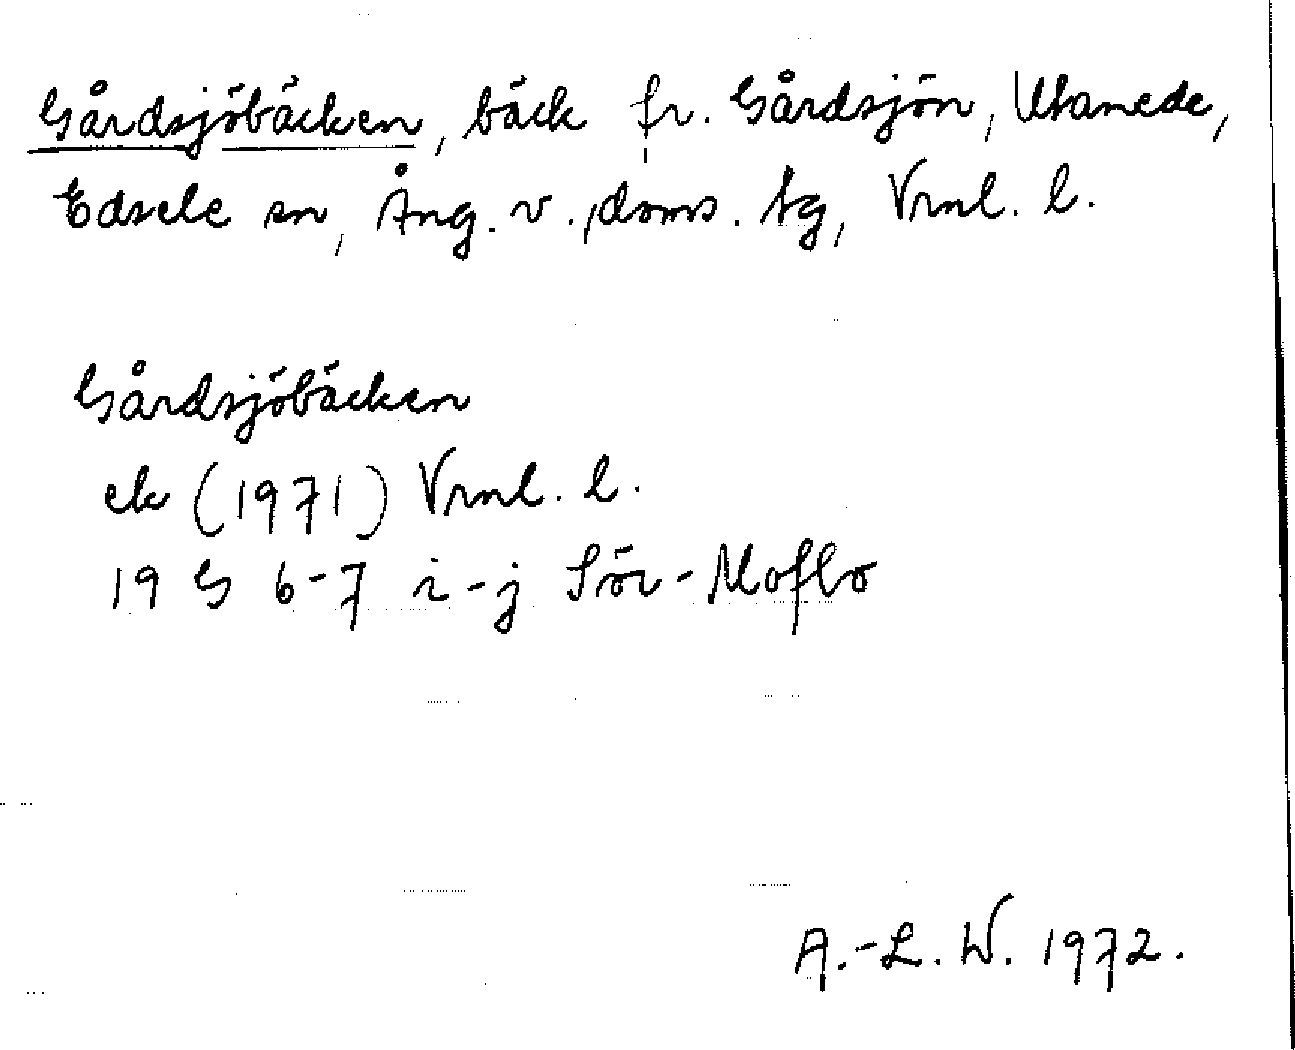 Gårdsjöbäcken, bäck fr. Gårdsjön, Utanede,
Edsele sn, Ång. v. doms. tg, Vrnl. l.
Gårdsjöbäcken
ek (1971) Vrnl. l.
19 G 6-7 i-j Sör-Moflo
A.-L. W. 1972.